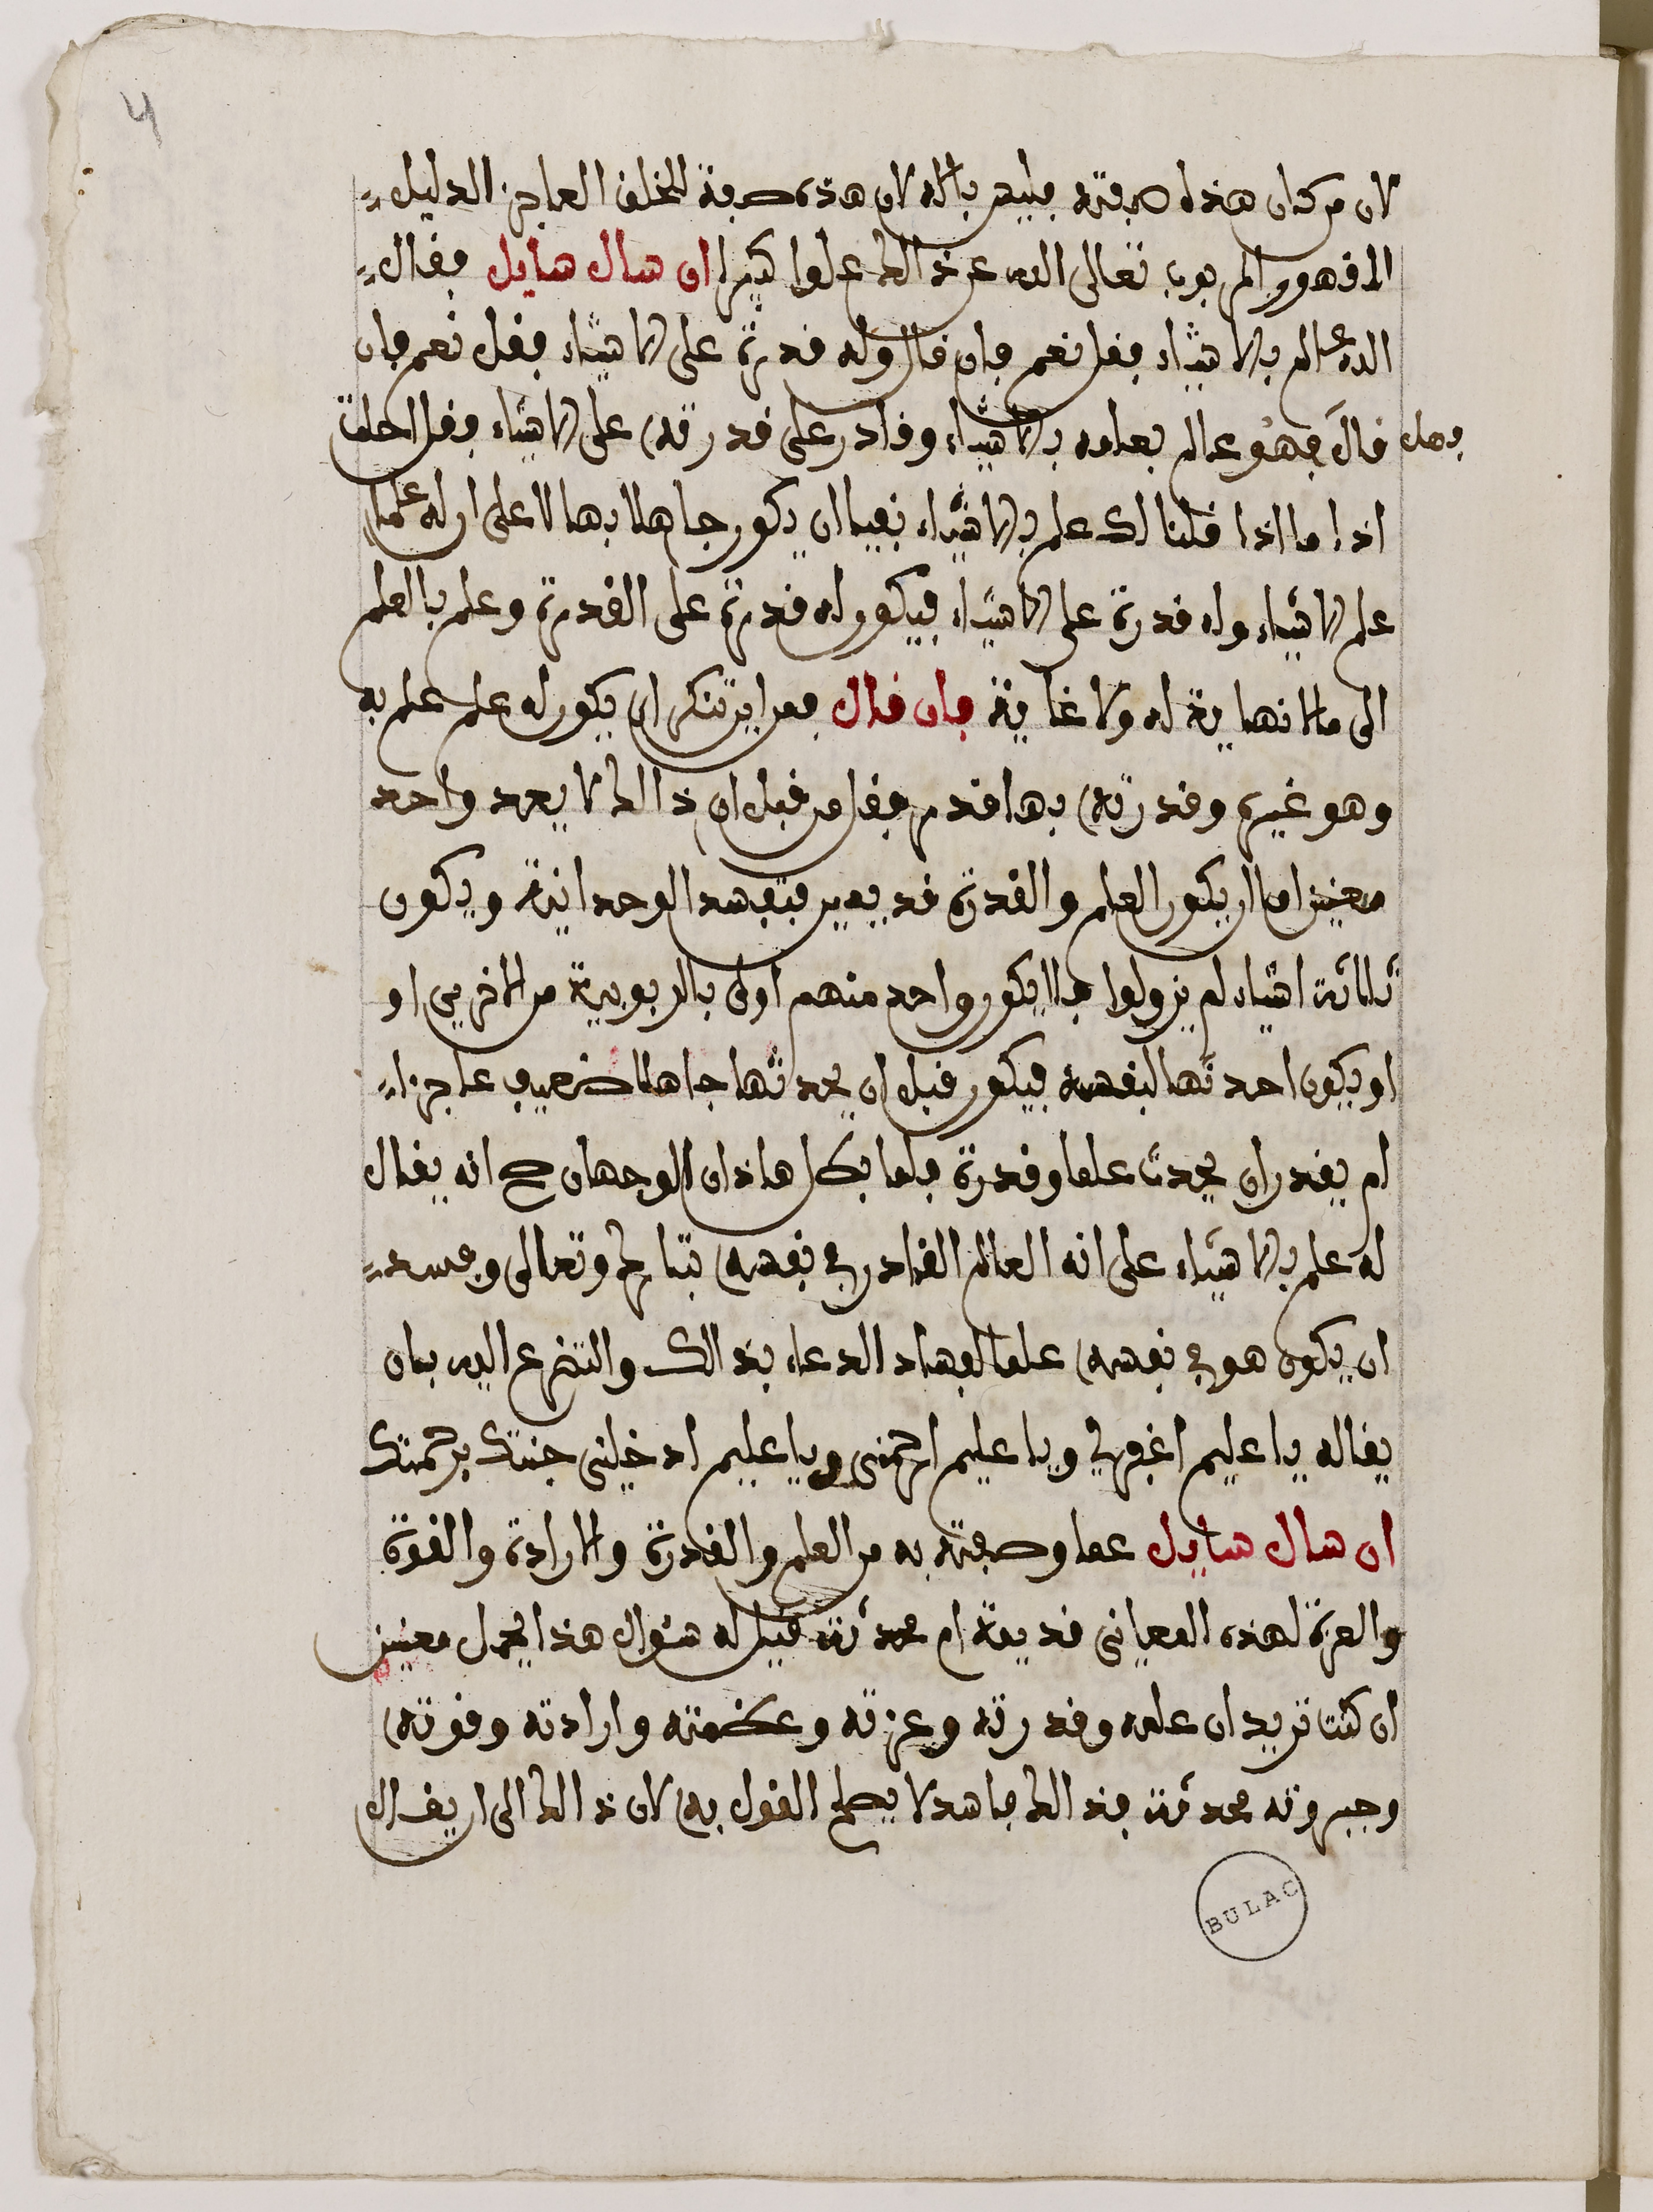 4
لان من كان هذا صفته فليس بالاه لان هذه صفة المخلف العاجز الدليل
المقهور المربوب تعالى الله عن ذالك علوا كبيرا ان سال سايل فقال
الله عالم بالاشياء فقل نعم فان قال وله قدرة على الاشياء فقل نعم فان
فهل قال فهو عالم بعلمه بالاشياء وقادر على قدرته على الاشياء فقل احلت
اذا ما اذا قلنا لك علم بالاشياء نفينا ان يكون جاهلا بها لا على ان له علما
علم الاشياء وله قدرة على الاشياء فيكون له قدرة على القدرة وعلم بالعلم
الى ما لا نهاية له ولا غاية فان قال فمن اين تنكر ان يكون له علم علم به
وهو غيره وقدرته بها قدر فقل من قبل ان ذالك لا يعد واحد
معنيين اما ان يكون العلم والقدرة قديمين فتفسد الوحدانية ويكون
ثلاثة اشياء لم يزولوا فلا يكون واحد منهم اولى بالربوبية من الاخرين او
او يكون احدثها لنفسه فيكون قبل ان يحدثها جاهلا ضعيف عاجزا
لم يقدر ان يحدث علما وقدرة فلما بطل هاذان الوجهان صح انه يقال
له علم بالاشياء على انه العالم القادر في نفسه تبارك وتعالى ويفسد
ان يكون هو في نفسه علما لفساد الدعاء بذالك والتضرع اليه بان
يقاله يا عليم اغفرلي ويا عليم ارحمني ويا عليم ادخلني جنتك برحمتك
ان سال سايل عما وصفته به من العلم والقدرة والارادة والقوة
والعزة لهذه المعاني قديمة ام محدثة قيل له سؤال هذا يحمل معنيين
ان كنت تريد ان علمه وقدرته وعزته وعظمته وارادته وقوته
وجبروته محدثة فذالك فاسد لا يصلح القول به لان ذالك الى ان يقال
BULAC